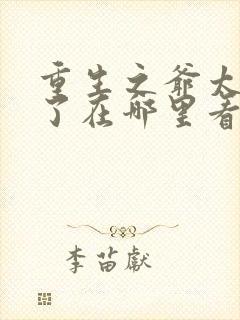 重生之爺太
了在哪里看
李苗獻